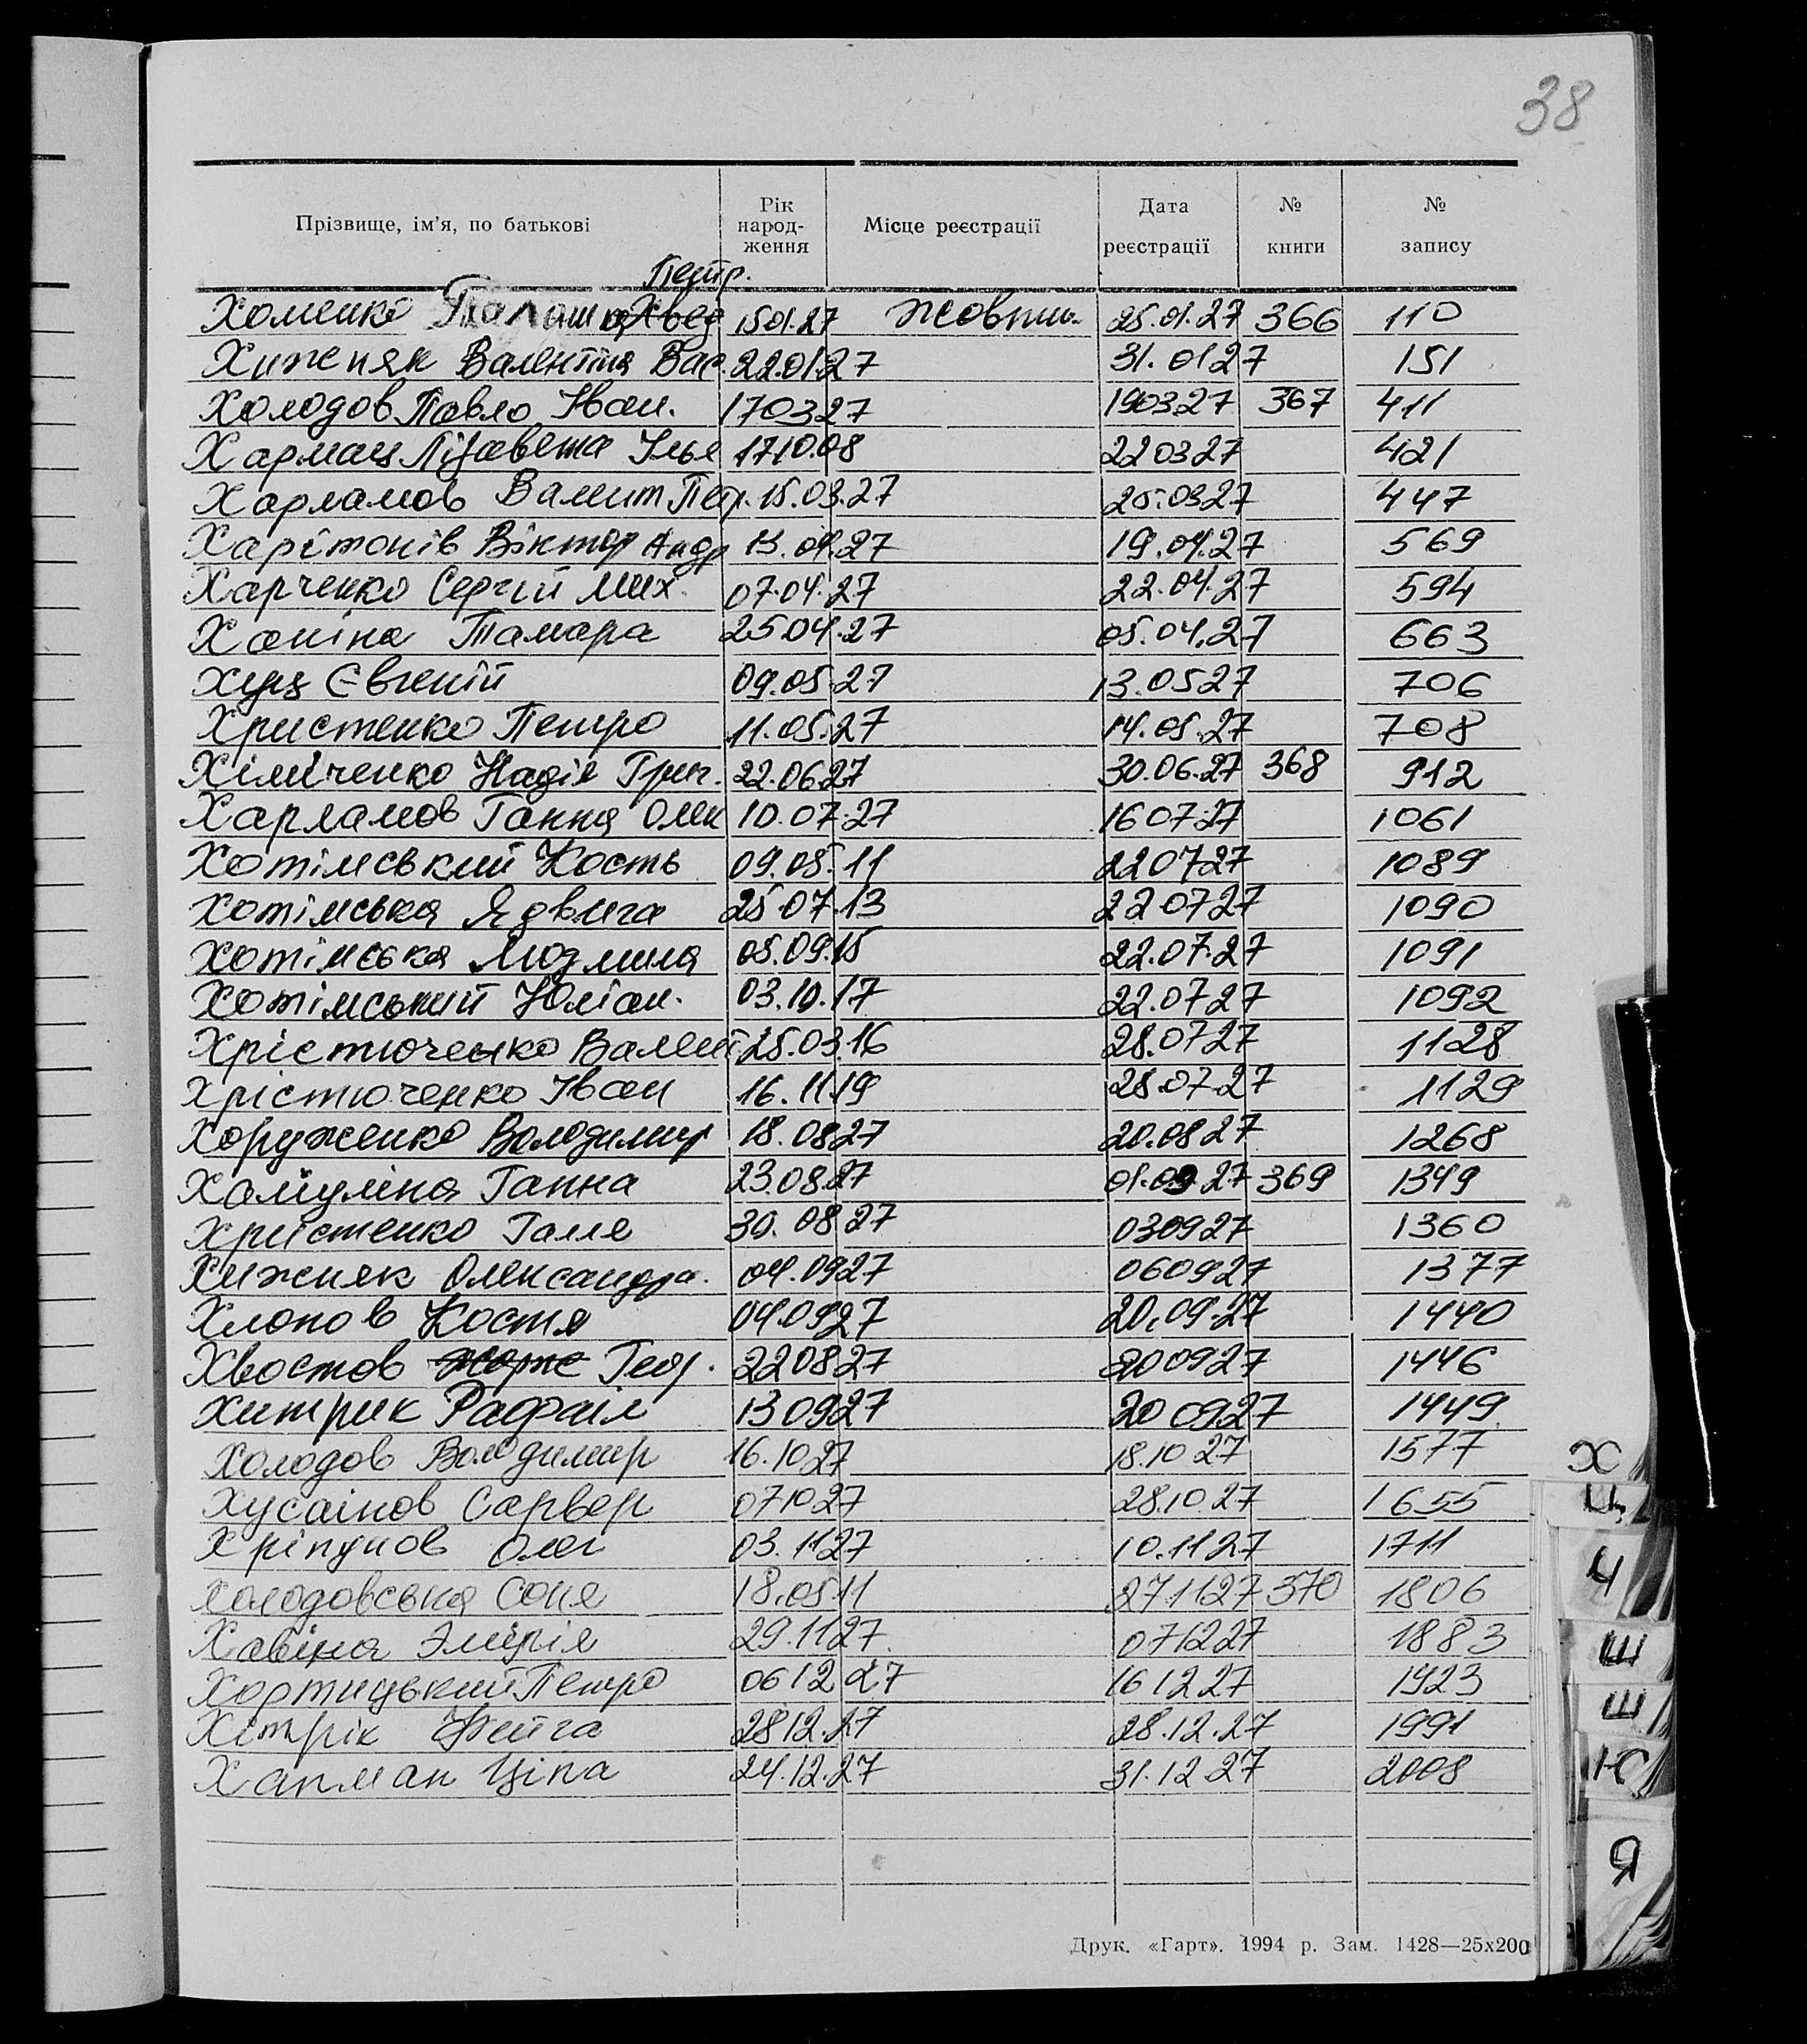 38
Прізвище, ім’я, по батькові Рік народ- ження Місце реєстрації Дата реєстрації № книги № запису
Петр.
Хоменко 15.01.27 Жовтн. 25.01.27 366 110
Хиженяк Валентина Вас. 22.01.27 31.01 27 151
Холодов Павло Іван. 170327 190327 367 411
Хармац Лізавета Ілье 1710.08 220327 421
Харламов Валент Петр. 15.03.27 25.0327 447
Харітонів Віктор Андр 13.04.27 19.04.27 569
Харченко Сергій Мих. 07.04.27 22.04.27 594
Ханіна Тамара 2504.27 05.04.27 663
Хуц Євгеній 09.05.27 13.0527 706
Христенко Петро 11.05.27 14.05.27 708
Хіміченко Надія Григ. 22.06.27 30.06.27 368 912
Харламов Ганна Олек 10.07.27 160727 1061
Хотімський Кость 09.05.11 220727 1089
Хотімська Ядвига 25 07.13 220727 1090
Хотімська Людмила 05.09.15 22.07.27 1091
Хотімський Юліан. 03.10.17 22.0727 1092
Хрістюченко Валент. 25.03.16 28.0727 1128
Хрістюченко Іван 16.11.19 28.07.27 1129
Хоруженко Володимир 18.0827 20.0827 1268
Ганна 23.08.27 01.09 27 369 1349
Христенко Галя 30.08 27 030927 1360
Хижняк Олександра. 04.0927 060927 1377
Хлопов Костя 04.0927 20.09.27 1440
Хвостов Жорж Геор. 220827 200927 1446
Хитрик Рафаіл 130927 200927 1449
Холодов Володимир 16.1027 18.10 27 1577
Хусаінов Сарвер 071027 28.10.27 1655
Хріпунов Олег 03.1127 10.1127 1711
Холодовська Соня 18.0511 271127 370 1806
Хавіна 29.1127. 071227 1883
Хортицький Петро 0612 27 161227 1923
Хітрік 2812.27 28.12.27 1991
Хапман Ціпа 24.12.27 31.12 27 2008
Х
Ц
Ч
Ш
Щ
Ю
Я
Друк. «Гарт». 1994 р. Зам. 1428—25х200